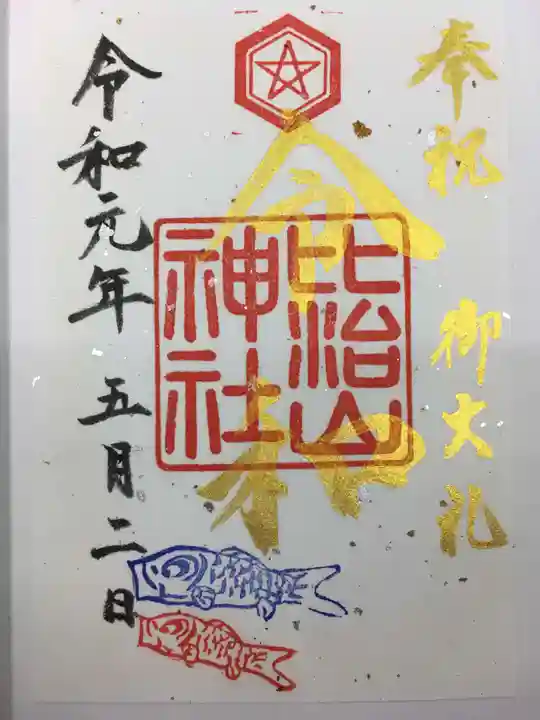 奉祝 御大礼
令和
比治山
神社
令和元年 五月二日